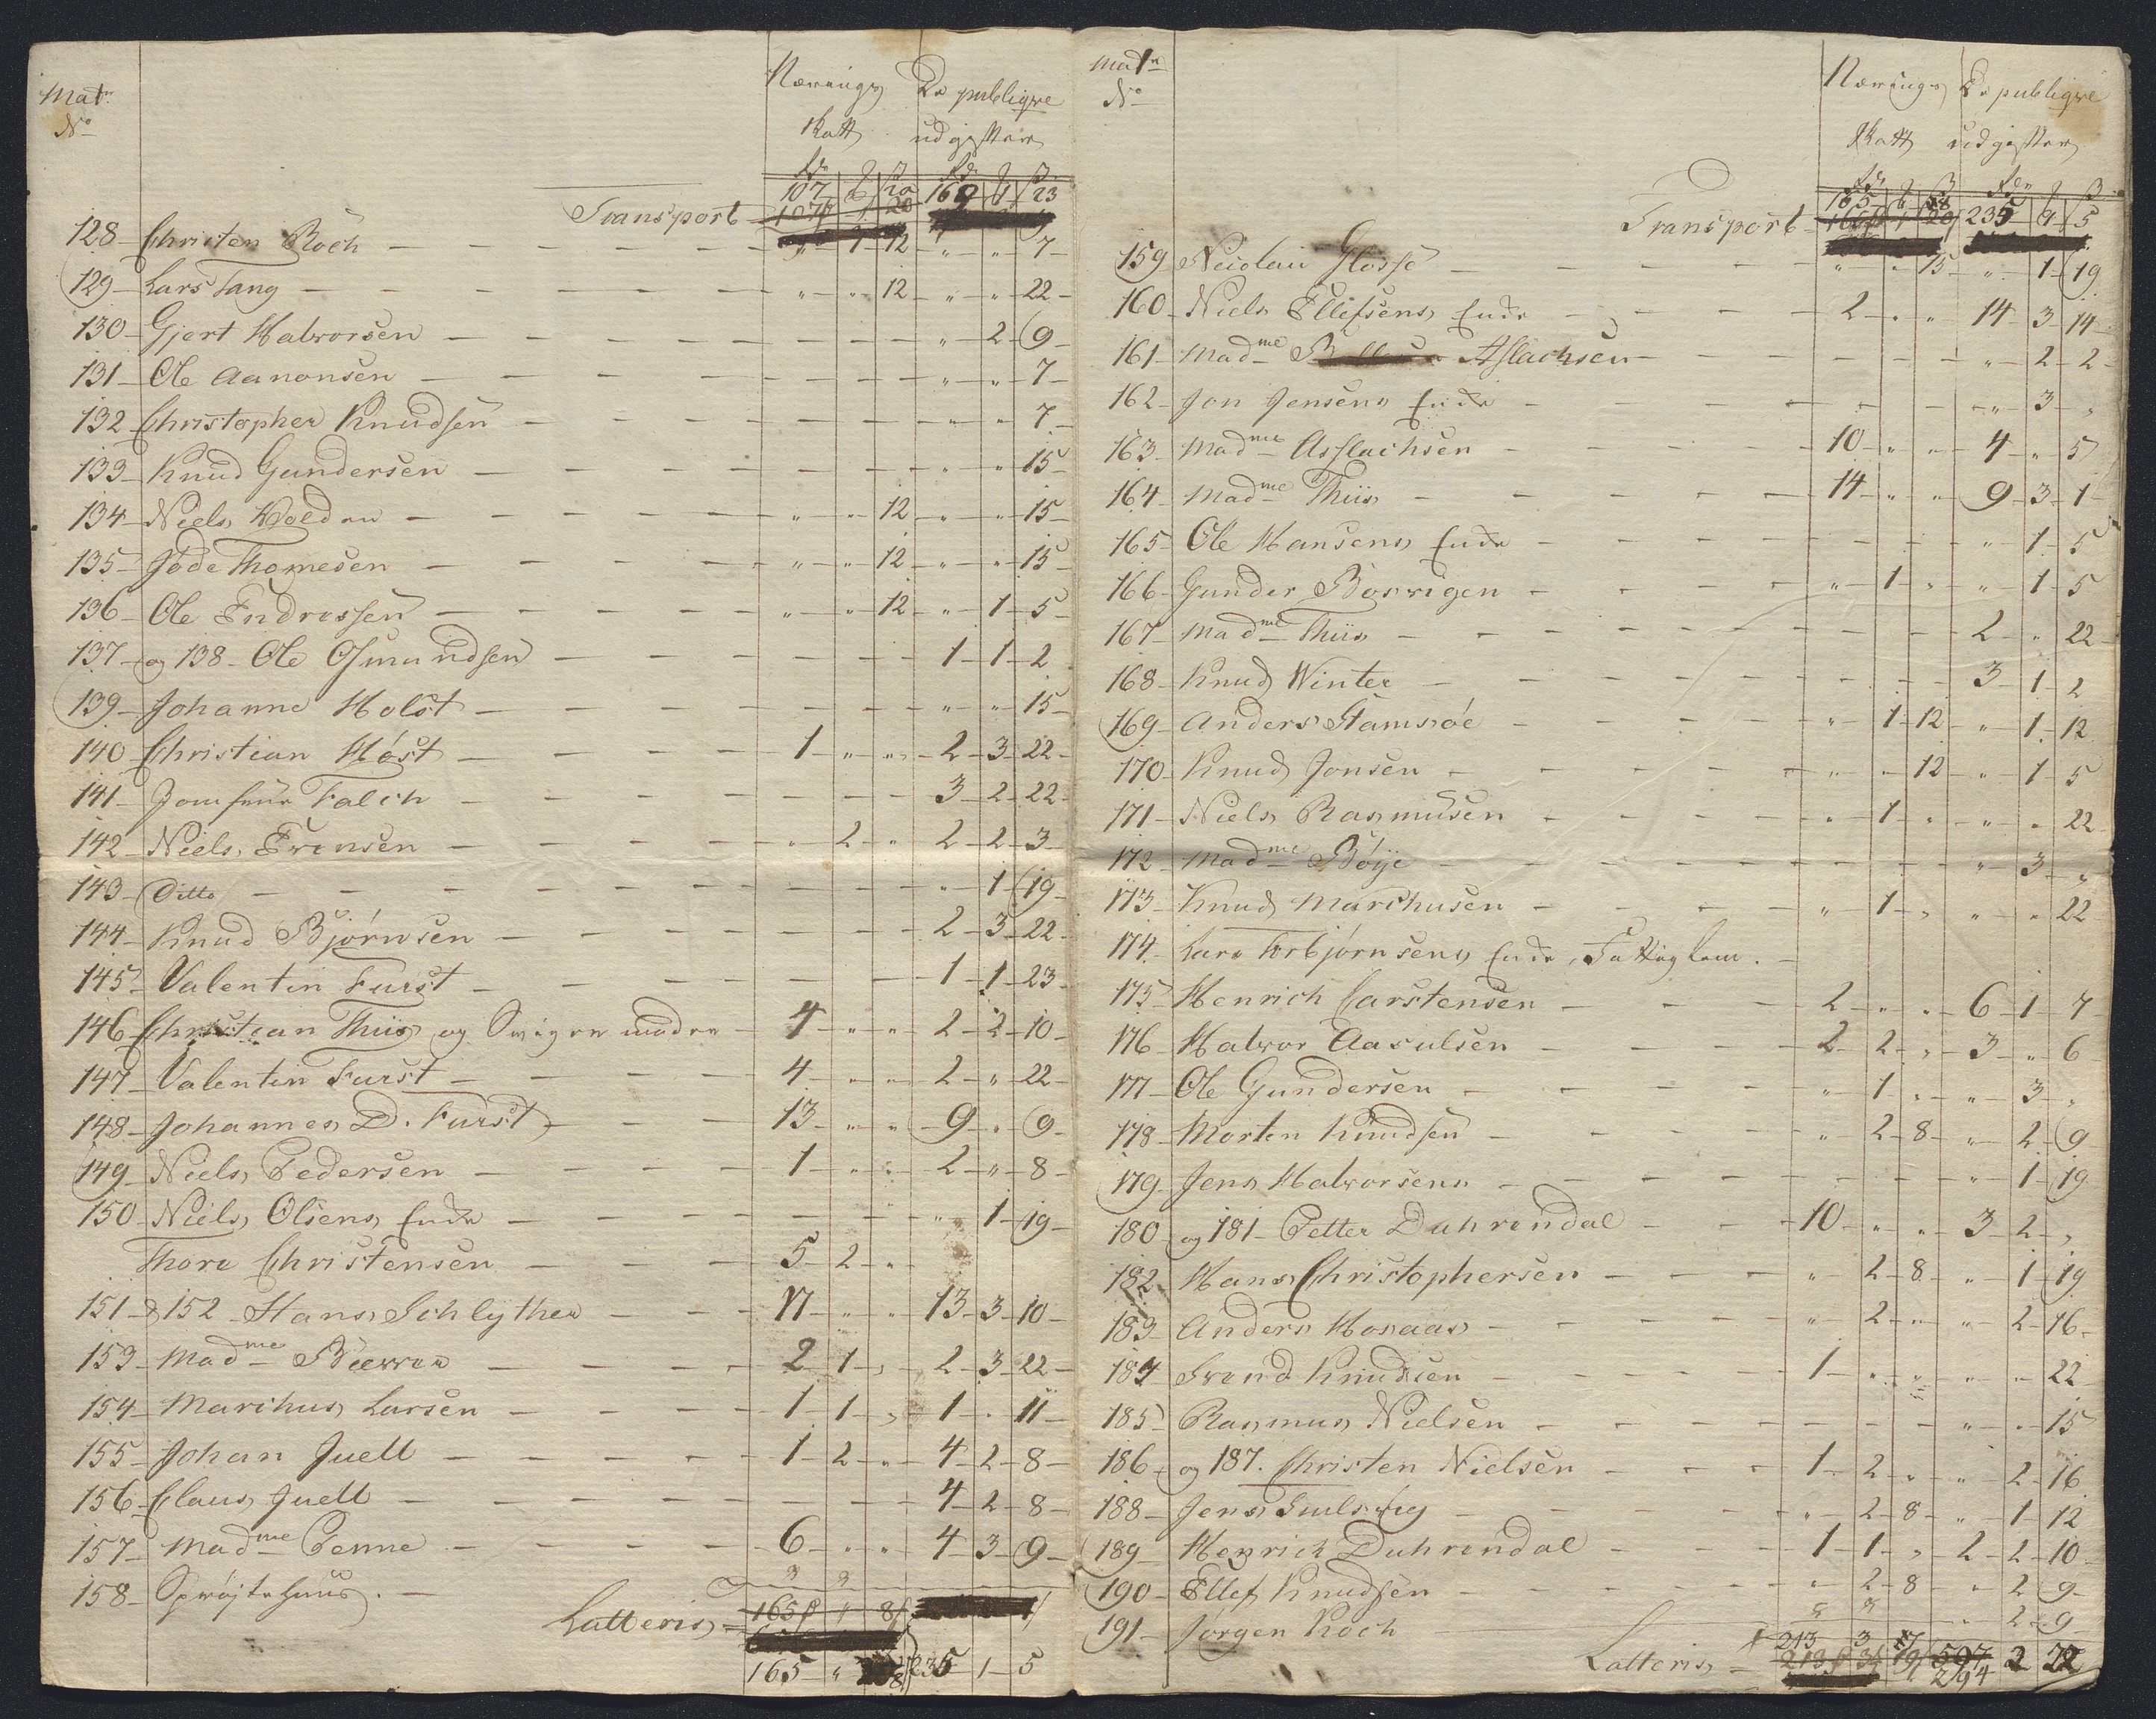 Matr
No
Nærings De publiqve
Skatt udgifter
Transport 107 20 169 1 23
128 Christen Koch " 1 12 " " 7
129 Lars Tang " " 12 " " 22
130 Gjert Halvorsen " 2 9
131 Ole Aanonsen " " 7
132 Christopher Knudsen " " 7
133 Knud Gundersen " " 15
134 Niels Holden " " 12 " " 15
135 Jøde Thomesen " " 12 " " 15
136 Ole Endressen " " 12 " 1 5
137 og 138 Ole Osmundsen 1 1 2
139 Johanne Holst " " 15
140 Christian Høst 1 " " 2 3 22
141 Jomfrue Falch 3 2 22
142 Niels Evensen " 2 " 2 2 3
143 Ditto " 1 19
144 Knud Bjørnsen 2 3 22
145 Valentin Furst 1 1 23
146 Christian Thiis og Svigermoder 4 " " 2 2 10
147 Valentin Furst 4 " " 2 " 22
148 Johannes D. Furst 13 " " 9 " 9
149 Niels Pedersen 1 " " 2 " 8
150 Niels Olsens Enke " 1 19
Thore Christensen 5 2 "
151 & 152 Hans Schlyther 17 " " 13 3 10
153 Madme 2 1 " 2 3 22
154 Marchus Larsen 1 1 " 1 " 11
155 Johan Juell 1 2 " 4 2 8
156 Claus Juell 4 2 8
157 Madme Penne 6 " " 4 3 9
158 Sprøjtehuus
Latteris 165 8
165 " 235 1 5
Matr
No
Nærings De publiqve
Skatt udgifter
Transport 165 235 1 5
159 Nicolai Glosse " " 15 " 1 19
160 Niels Ellefsens Enke 2 " " 14 3 14
161 Madme Aslachsen " 2 2
162 Jon Jensens Enke " 3 "
163 Madme Asslachsen 10 " " 4 " 5
164 Madme Thiis 14 " " 9 3 1
165 Ole Hansens Enke " 1 5
166 Gunder Bosvigen " 1 " " 1 5
167 Madme Thiis 2 " 22
168 Knud Winter 3 1 2
169 Anders Stamsøe " 1 12 " 1 12
170 Knud Jonsen " " 12 " 1 5
171 Niels Rasmusen " 1 " " " 22
172 Madme Bøije " 3 "
173 Knud Marchusen " 1 " " " 22
174 Lars Torbjørnsens Enke, Fattiglem.
175 Henrich Carstensen 2 " " 6 1 7
176 Halvor Aasulsen 2 2 " 3 " 6
177 Ole Gundersen " 1 " " 3 "
178 Morten Knudsen " 2 8 " 2 9
179 Jens Halvorsens " 1 19
180 og 181 Petter Duhrendal 10 " " 3 2 "
182 Hans Christophersen " 2 8 " 1 19
183 Anders Hosaas " 2 " " 2 16
184 Svend Knudsen 1 " " " " 22
185 Rasmus Nielsen " " 15
186 og 187. Christen Nielsen 1 2 " " 2 16
188 Jens " 2 8 " 1 12
189 Henrich Duhrendal 1 1 " 2 2 10
190 Ellef Knudsen " 2 8 " 2 9
191 Jørgen Koch " 2 9
Latteris 213 3 294 2 22